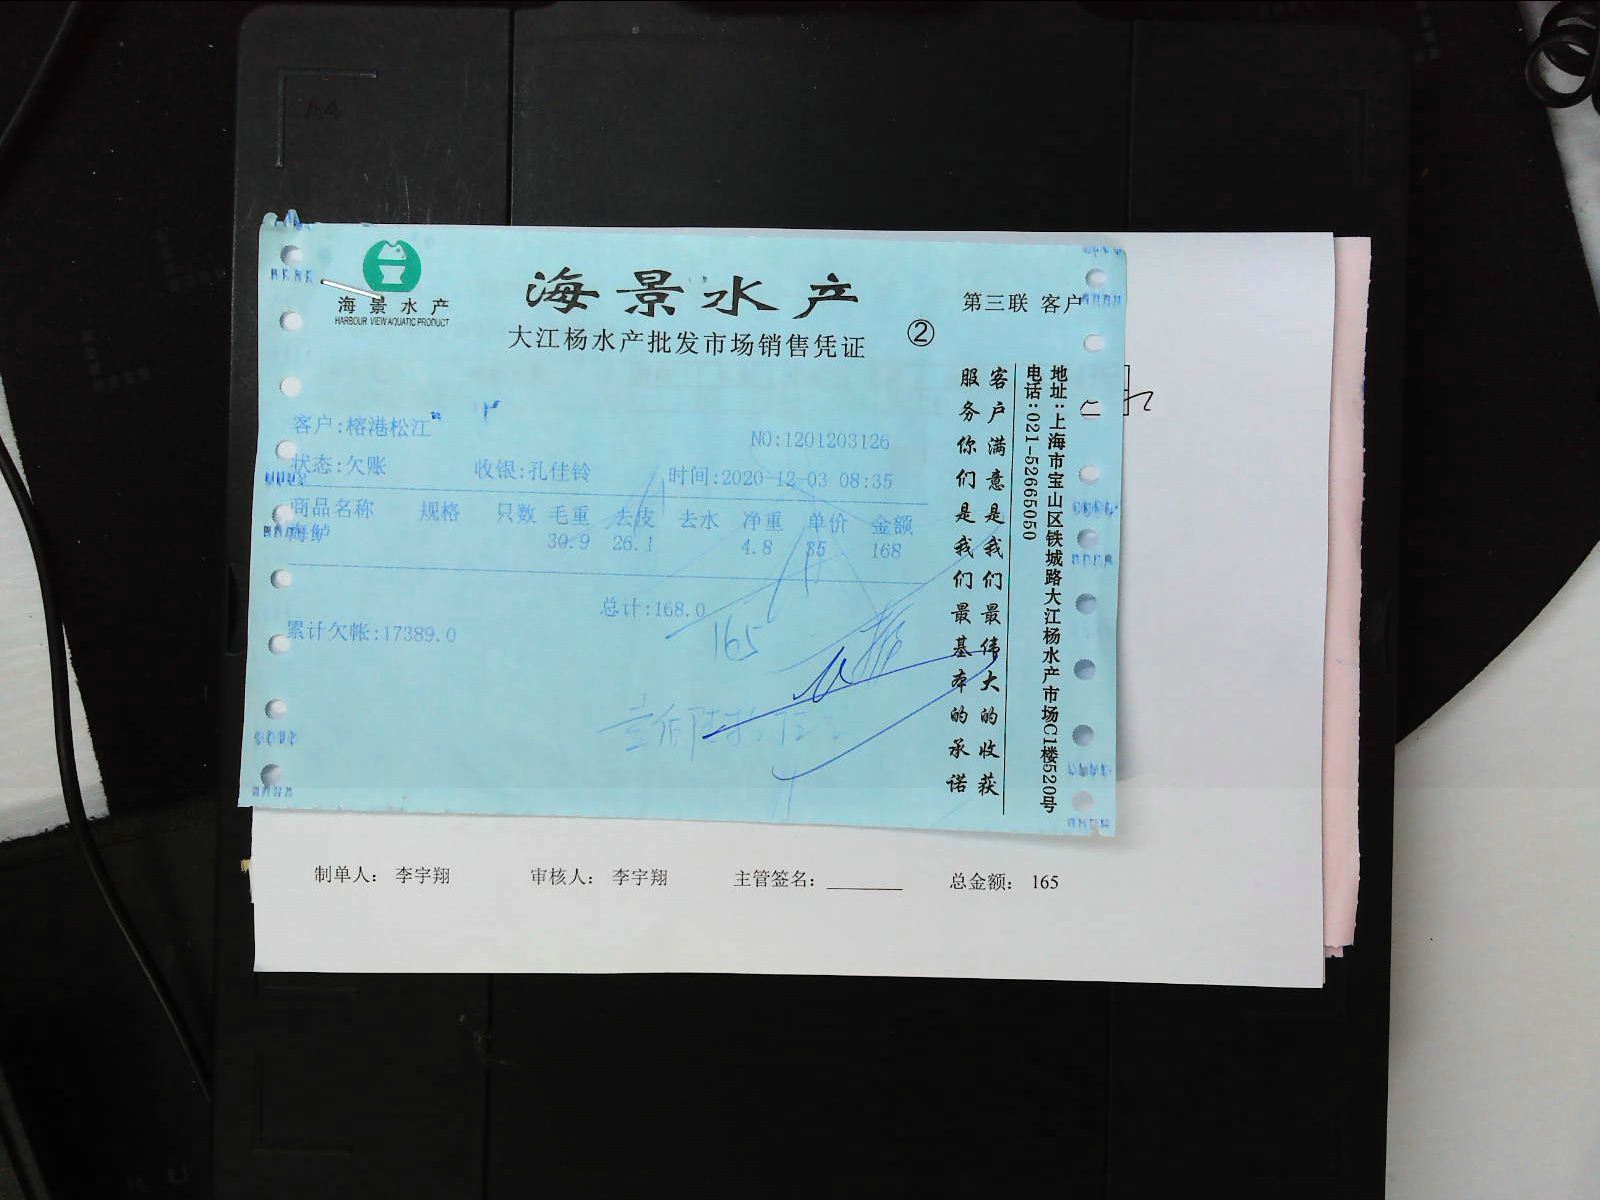 A4
海景水产
HARBOUR VIEW AQUATIC PRODUCT
海景水产
大江杨水产批发市场销售凭证
②
第三联 客户
客户:榕港松江
NO:1201203126
状态:欠账 收银:孔佳铃 时间:2020-12-03 08:35
商品名称 规格 只数 毛重 去皮 去水 净重 单价 金额
海鲈 30.9 26.1 4.8 35 168
总计:168.0
165
累计欠帐:17389.0
客户满意是我们最伟大的收获
服务你们是我们最基本的承诺
地址:上海市宝山区铁城路大江杨水产市场C1楼520号
电话:021-52665050
制单人: 李宇翔 审核人: 李宇翔 主管签名: 总金额: 165